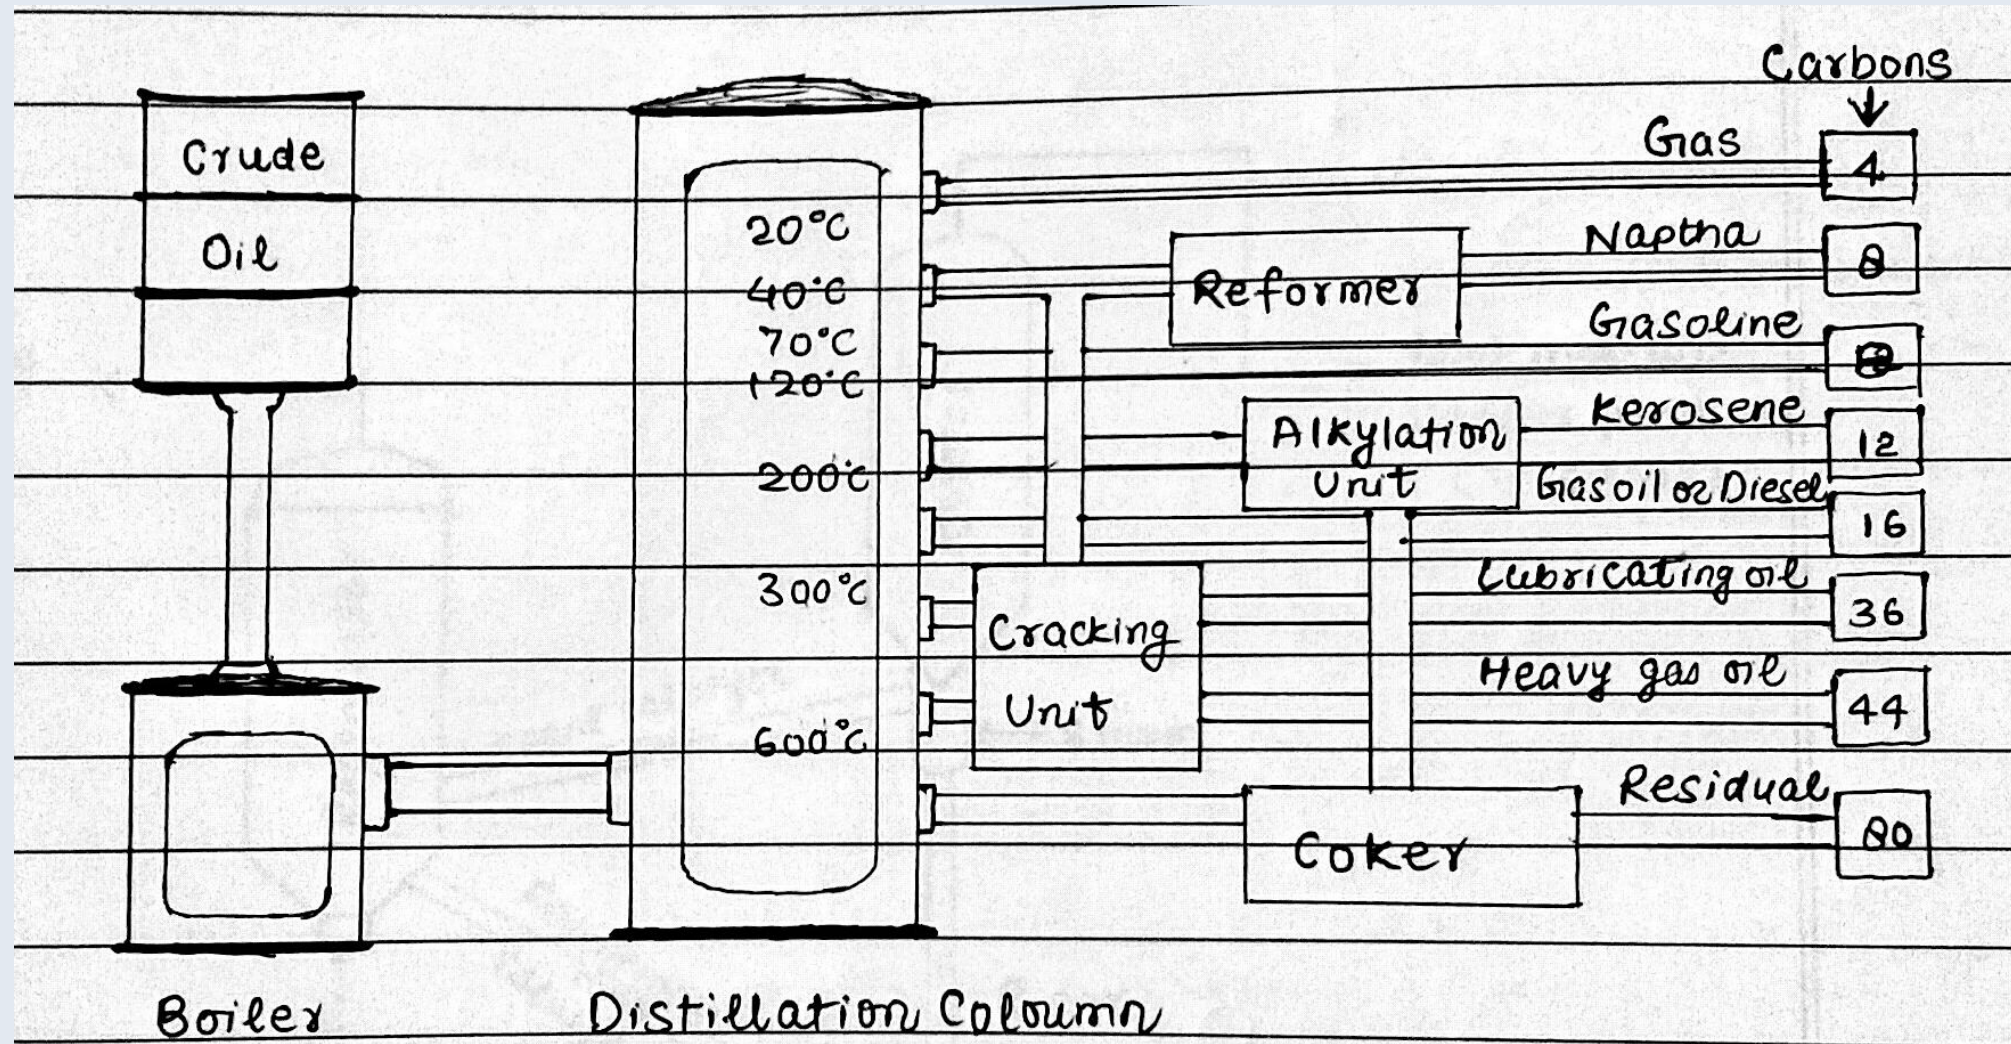 Carbons
Crude
Oil
20°C
40°C
70°C
120°C
200°C
300°C
600°C
Reformer
Alkylation
Unit
Cracking
Unit
Coker
Gas
4
Naptha
8
Gasoline
Kerosene
12
Gas oil or Diesel
16
Lubricating oil
36
Heavy gas oil
44
Residual
80
Boiler
Distillation Coloumn